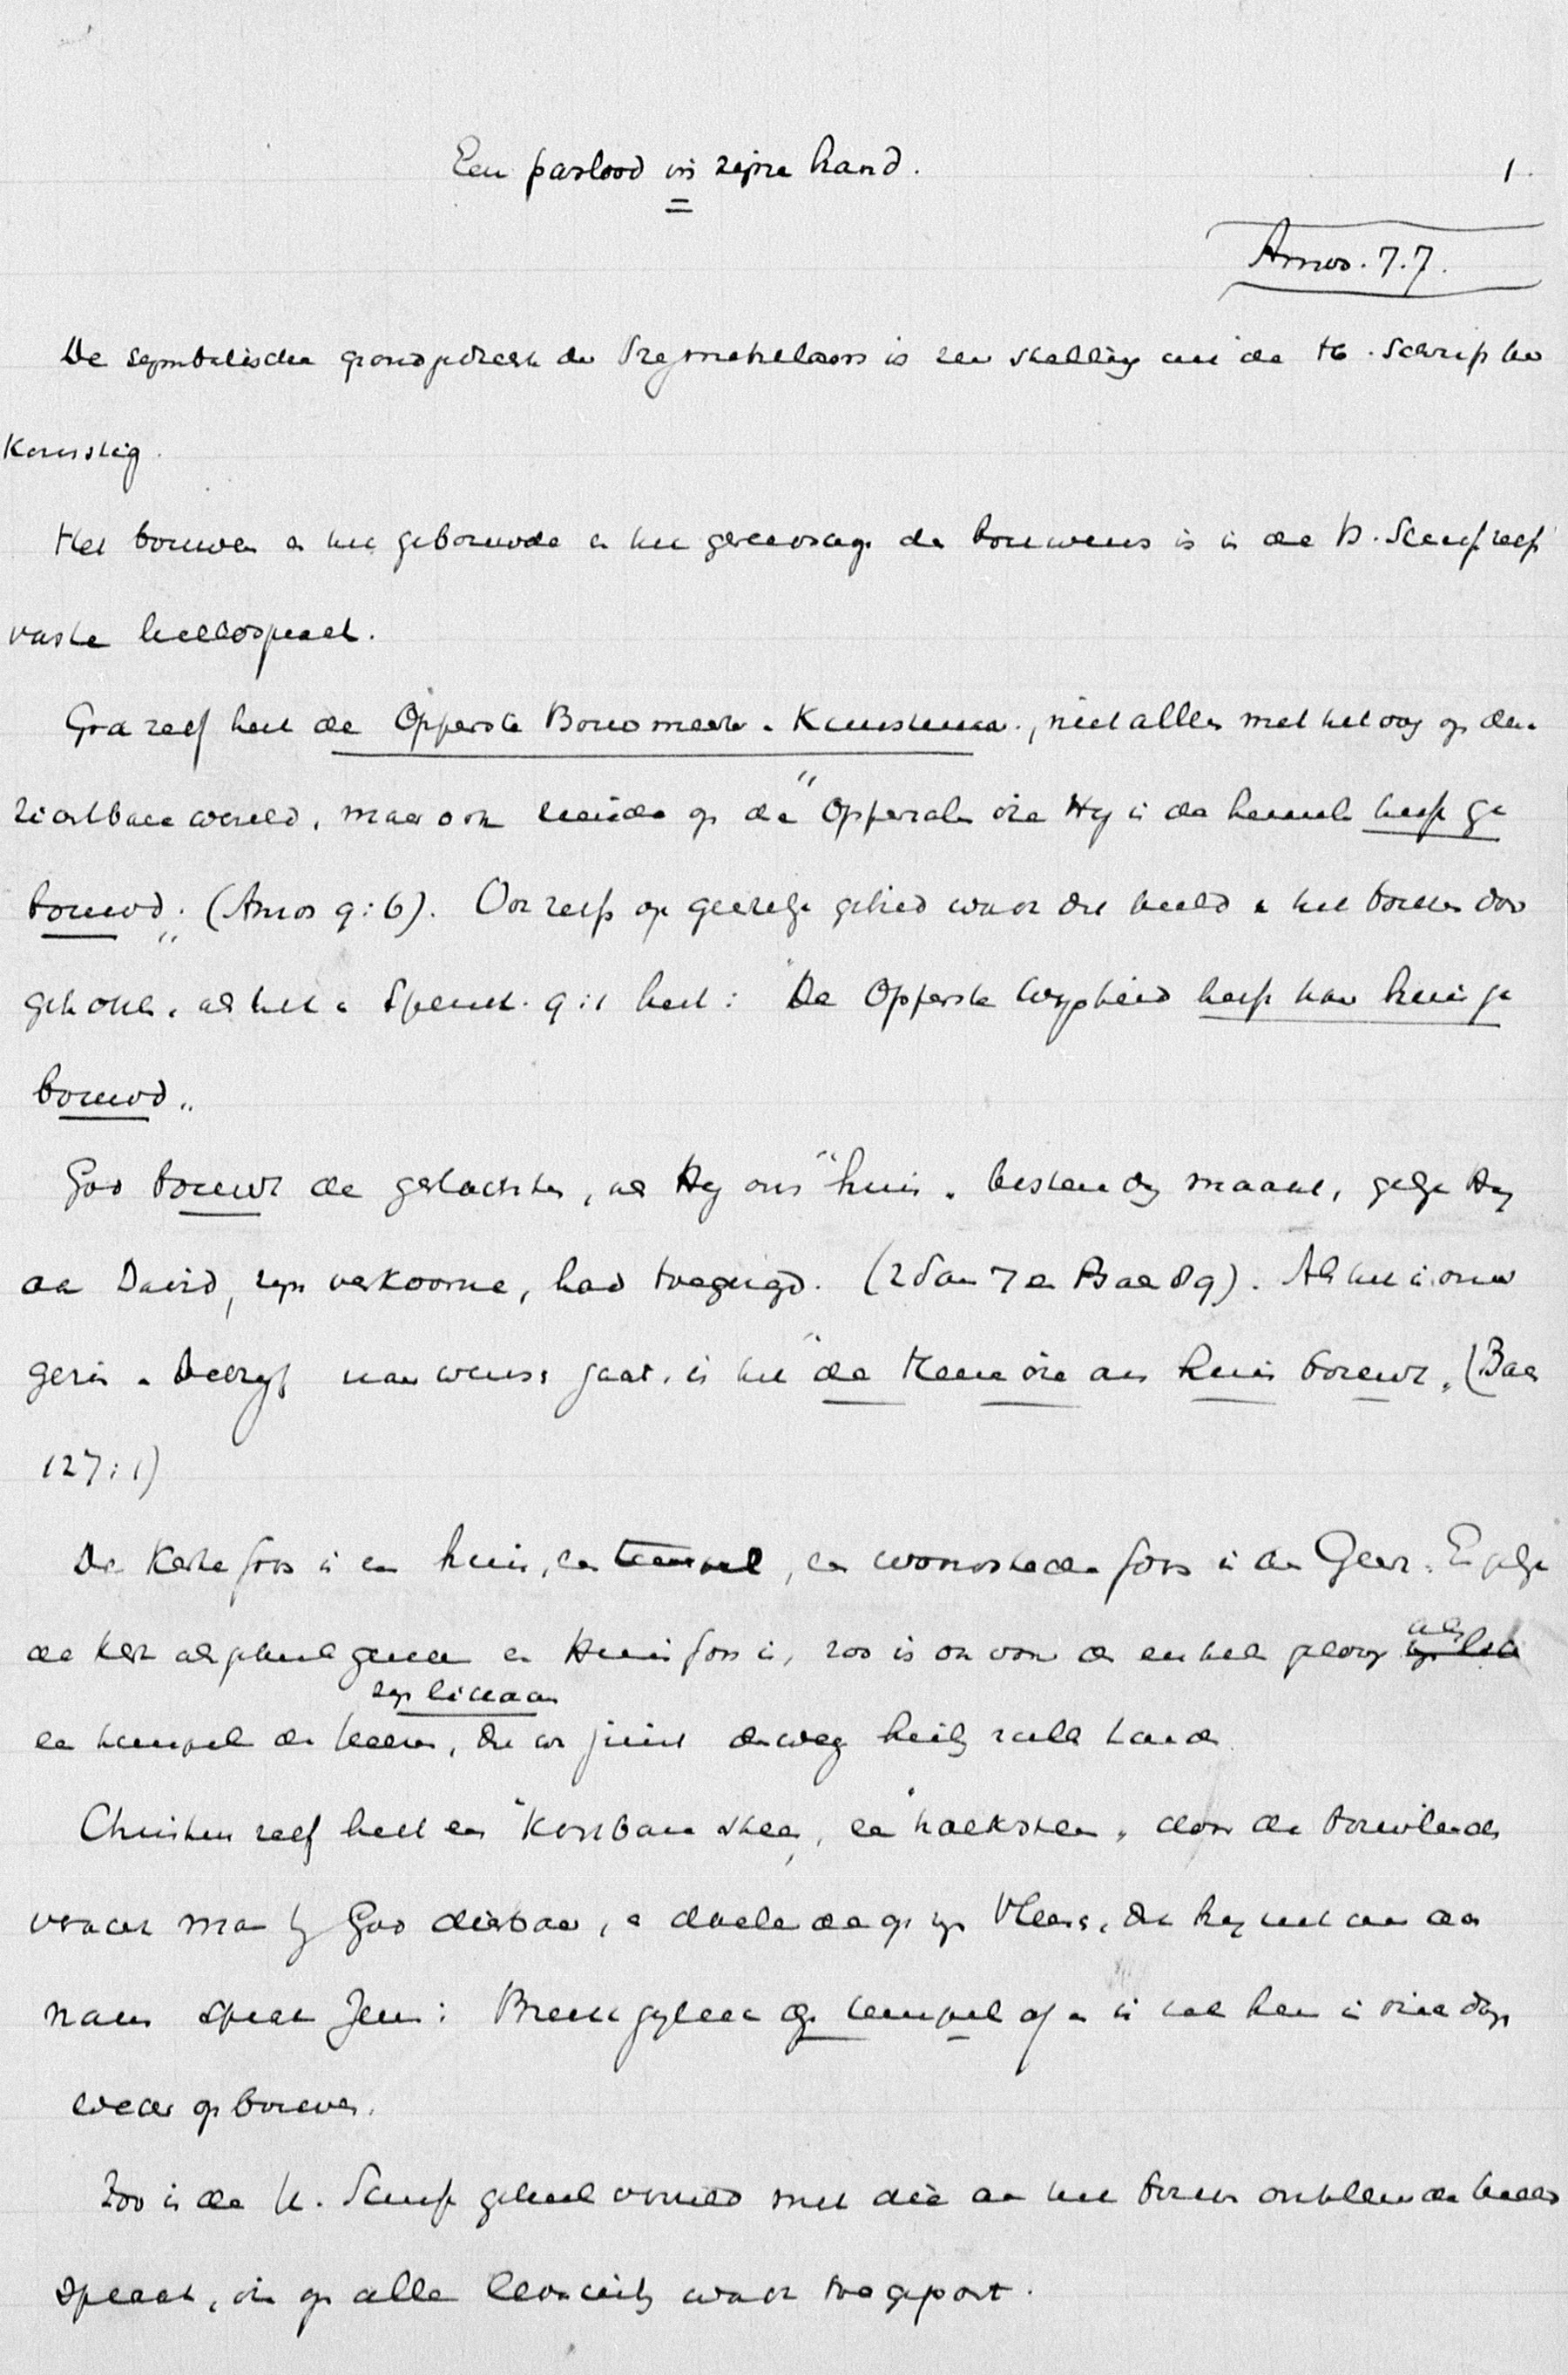 Een paslood in zijne hand. 1.
Amos. 7.7.
De symbolische grondgedachte der Vrijmetselaars is een stelling aan de H. Schrift her
komstig.
Het bouwen en het gebouwde en het gereedschap des bouwens is in de H. Schrift zelf
vaste beeldspraak.
God zelf heet de Opperste Bouwmeester en Kunstenaar, niet alleen met het oog op deze
zichtbare wereld, maar ook op de "Opperzalen die Hij in den hemel heeft ge
bouwd". (Amos 9:6). Ook zelfs op geestelijk gebied wordt dit beeld van het bouwen over
gebracht, als het in Spreuk. 9:1 heet: "De Opperste Wijsheid heeft haar huis ge
bouwd".
God bouwt de geslachten, als Hij ons "huis" bestendig maakt, gelijk Hij
aan David, zijn verkoorne, had toegezegd. (2 Sam 7 en Psalm 89). Als het in onw
gezin en bedrijf naar wensch gaat, is het "de Heere die ons huis bouwt". (Psalm
127:1)
De Kerke Gods is een huis, een tempel, een woonstede Gods in den Geest. En gelijk
de kerk als geheel genomen een Huis Gods is, zoo is ook voor den enkelen geloovige zijn lichaam als
een tempel des Heeren, dien we juist deswege heilig zullen houden.
Christus zelf heet een "kostbare steen, een hoeksteen", door de bouwlieden
veracht maar bij God dierbaar, en doelende op zijn Vleesch, dat hij uit ons aan
nam sprak Jezus: Breek gijlieden dezen tempel af en ik zal hem in drie dagen
weder opbouwen.
Zoo is de H. Schrift geheel vervuld met die aan het bouwen ontleende beeld
spraak, die op alle wordt toegepast.